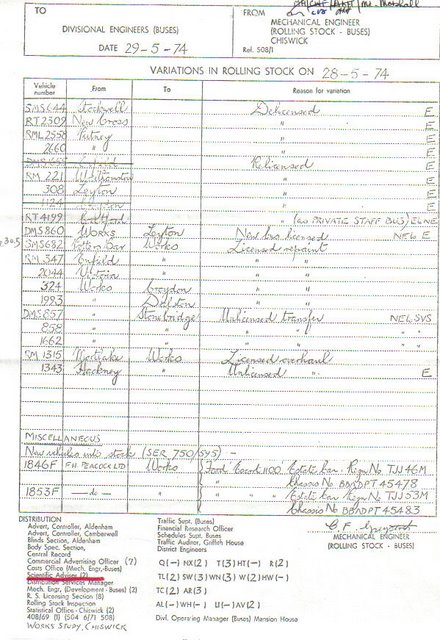 TO
FROM
DIVISIONAL ENGINEERS (BUSES)
MECHANICAL ENGINEER
(ROLLING STOCK - BUSES)
CHISWICK
DATE 29-5-74
Ref. 508/1
VARIATIONS IN ROLLING STOCK ON 28-5-74
Vehicle number From To Reason for variation
SMS644 Stockwell Delicensed E
RT2309 New Cross " E
RML2558 Putney " E
2660 " " E
Relicensed E
RM 221 Walthamstow " E
308 Leyton " E
1124 Leyton " E
RT4199 " (as PRIVATE STAFF BUS)
DMS860 Works Leyton New bus licensed NEW E
SMS682 Potters Bar Works Licensed repaint
RM 347 Enfield " " "
2044 " " "
324 Works Croydon " "
1993 " Dalston " "
DMS857 " Stonebridge Unlicensed transfer NEL SVS
858 " " " " " "
1662 " " " " " "
RM 1315 Mortlake Works Licensed overhaul
1343 Hackney " Unlicensed " E
MISCELLANEOUS
New vehicles into stock (SER 750/595) -
1846F F.H. PEACOCK LTD Works Ford Escort 1100 Estate Car. Regn No TJJ46M
Chassis No BBADPT 45478
1853F — do — " " " " Estate Car. Regn No TJJ53M
Chassis No BBADPT 45483
DISTRIBUTION
Advert, Controller, Aldenham
Advert, Controller, Camberwell
Blinds Section, Aldenham
Body Spec. Section,
Central Record
Commercial Advertising Officer (7)
Costs Office (Mech. Engr.-Buses)
Scientific Adviser (2)
Distribution Services Manager
Mech. Engr, (Development - Buses) (2)
R. S. Licensing Section (8)
Rolling Stock Inspection
Statistical Office - Chiswick (2)
408/69 (1) 504 6/71 508
WORKS STUDY, CHISWICK
Traffic Supt. (Buses)
Financial Research Officer
Schedules Supt. Buses
Traffic Auditor, Griffith House
District Engineers
Q(-) NX(2) T(3) HT(-) R(2)
TL(2) SW(3) WN(3) W(2) HW(-)
TC(2) AR(3)
AL(-) WH(-) U(-) AV(2)
Divl. Operating Manager (Buses) Mansion House
MECHANICAL ENGINEER
(ROLLING STOCK - BUSES)